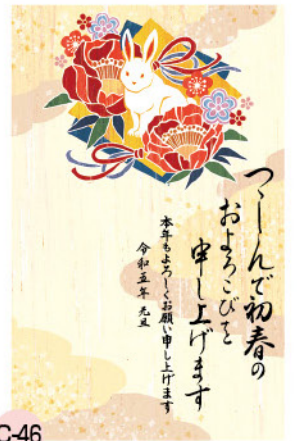 つゝしんで初春の
およろこびを
申し上げます
本年もよろしくお願い申し上げます
令和五年 元旦
C-46